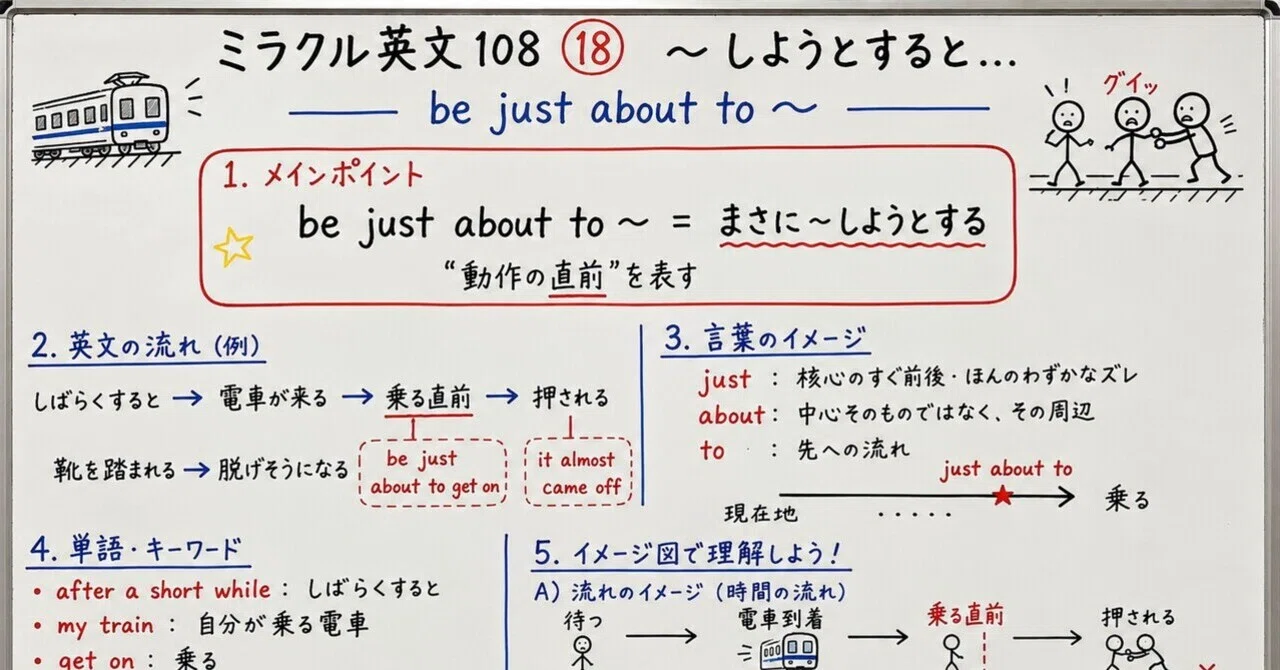 ミラクル英文108 ⑱ 〜しようとすると…
be just about to 〜
グイッ
1. メインポイント
be just about to 〜 = まさに〜しようとする
“動作の直前”を表す
2. 英文の流れ (例)
しばらくすると → 電車が来る → 乗る直前 → 押される
be just
about to get on
it almost
came off
靴を踏まれる → 脱げそうになる
3. 言葉のイメージ
just : 核心のすぐ前後・ほんのわずかなズレ
about : 中心そのものではなく、その周辺
to : 先への流れ
just about to
現在地 ..... 乗る
4. 単語・キーワード
• after a short while : しばらくすると
• my train : 自分が乗る電車
• get on : 乗る
5. イメージ図で理解しよう!
A) 流れのイメージ (時間の流れ)
待つ → 電車到着 → 乗る直前 → 押される